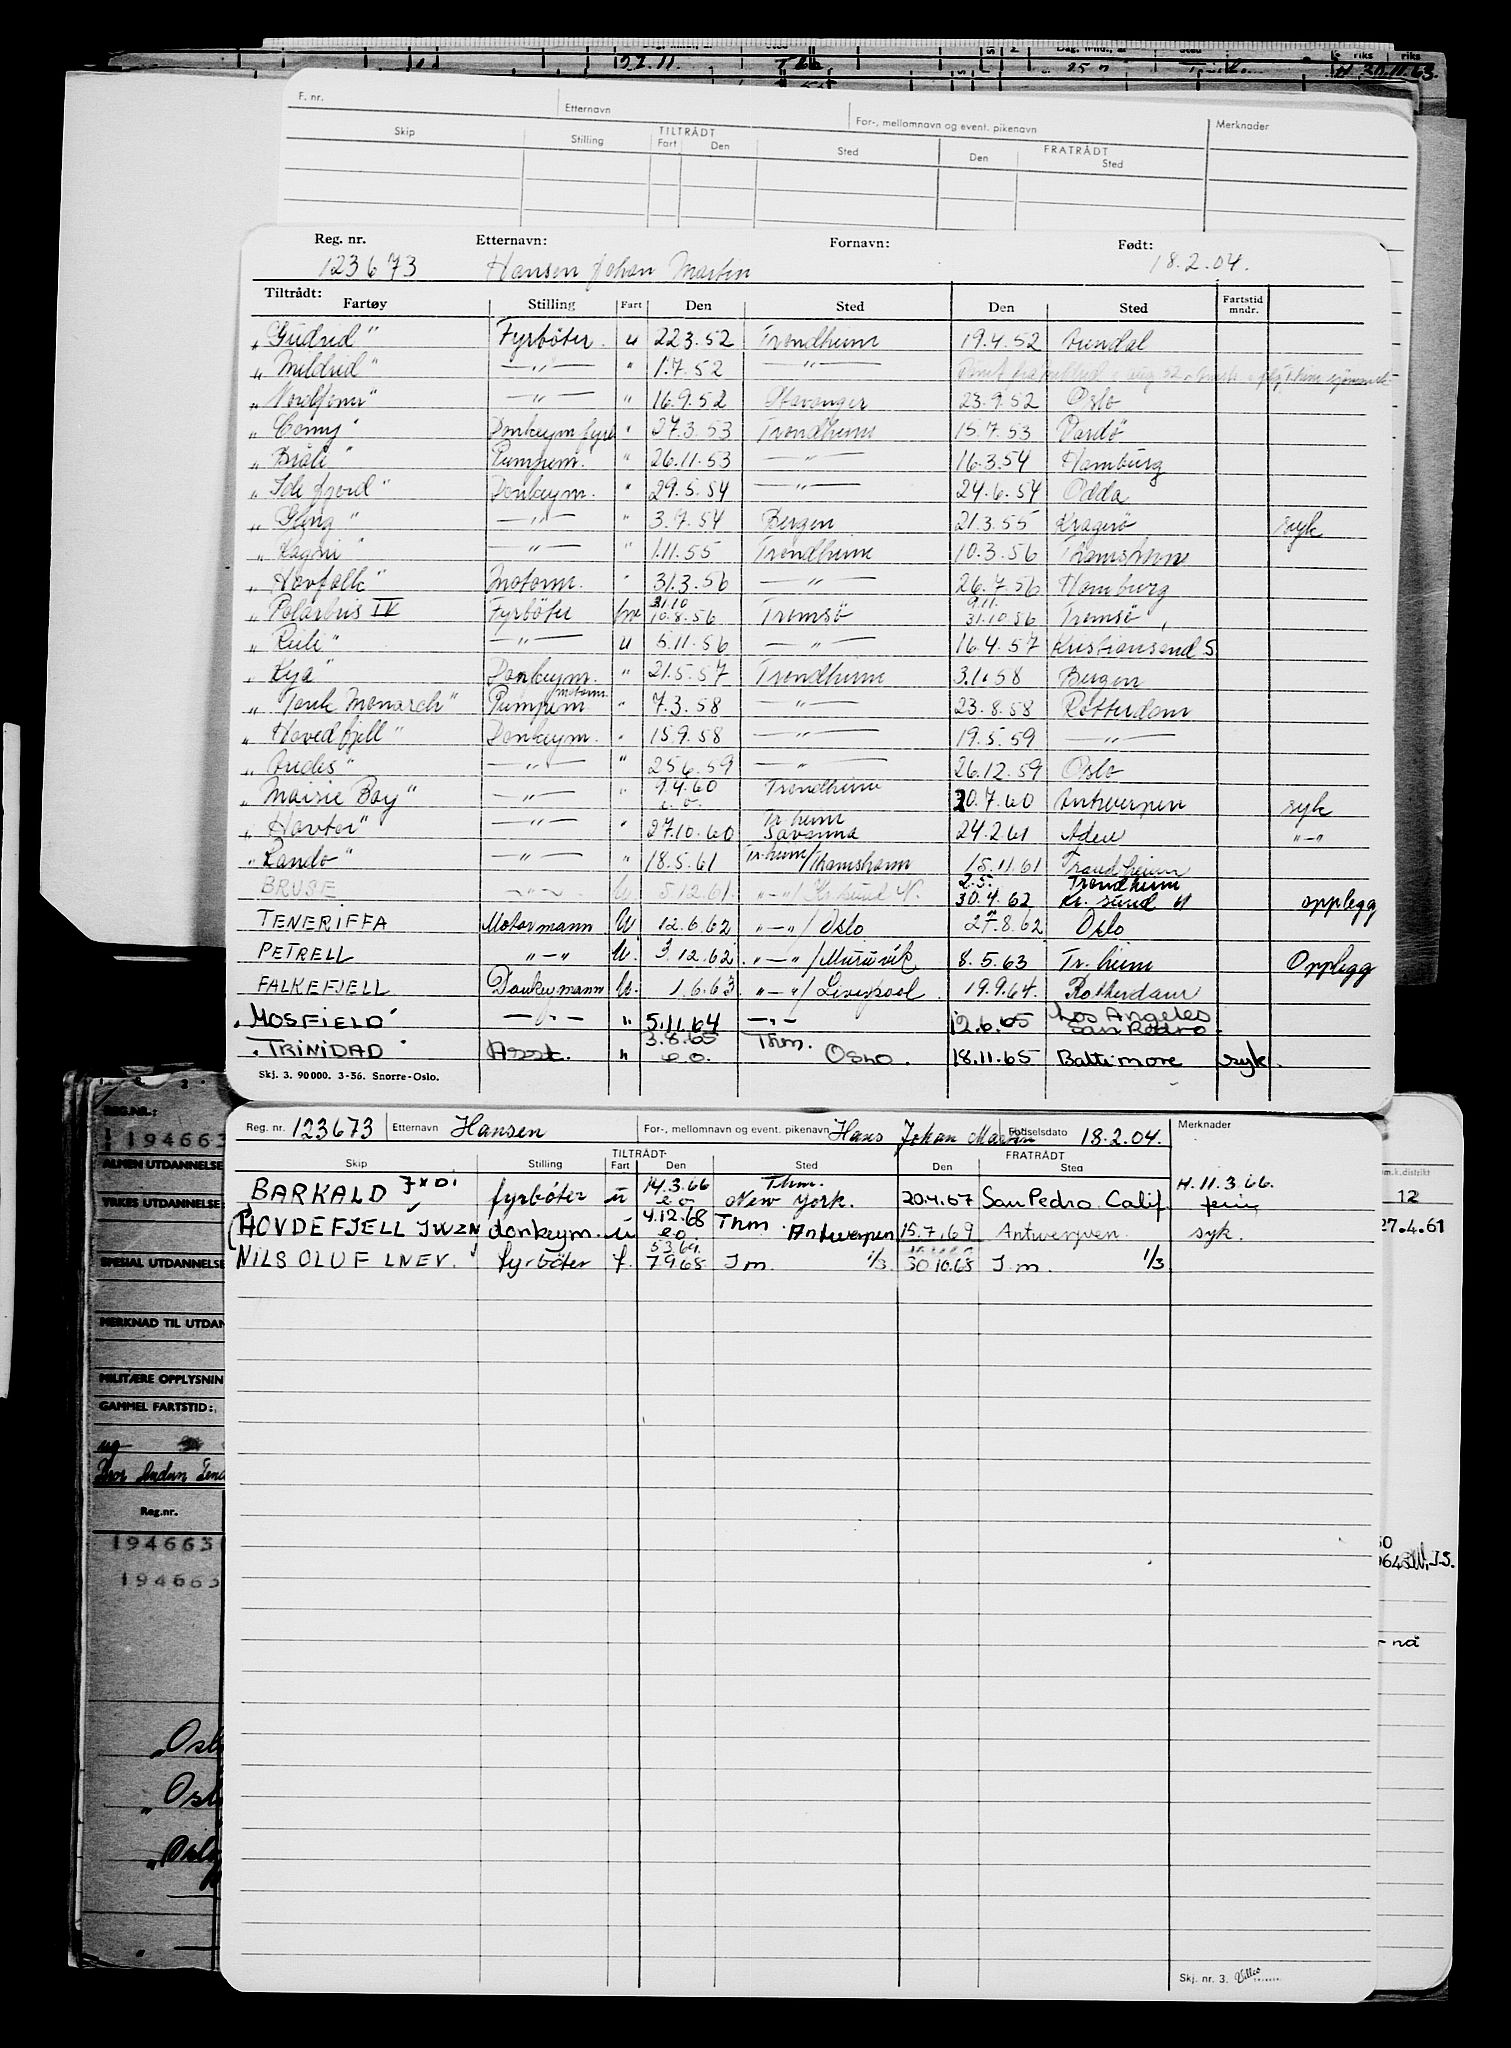 F. nr. Etternavn For-, mellomnavn og event. pikenavn Merknader
Skip Stilling TILTRÅDT Fart Den Sted FRATRÅDT Den Sted
Reg. nr. Etternavn: Fornavn: Født:
123673 Hansen Johan Martin 18.2.04.
Tiltrådt:
Fartøy Stilling Fart Den Sted Den Sted Fartstid mndr.
„Gudrid" Fyrbøter. u 22.3.52 Trondheim 19.4.52 Arendal
„Mildrid" —"— " 1.7.52 —"—
—"— " 16.9.52 Stavanger 23.9.52 Oslo
" 27.3.53 Trondheim 15.7.53 Vardø
„Bråli" Pumpem. " 26.11.53 —"— 16.3.54 Hamburg
Donkeym. " 29.5.54 —"— 24.6.54 Odda
—"— " 3.9.54 Bergen 21.3.55 Kragerø syk
„Ragni" —"— " 1.11.55 Trondheim 10.3.56 Thamshavn
„Havfalk" Motorm. " 31.3.56 —"— 26.7.56 Hamburg
„Polarbris IV" Fyrbøter 31.10 10.8.56 Tromsø 9.11. 31.10.56 Tromsø
—"— u 5.11.56 —"— 16.4.57 Kristiansand S.
„Kya" Donkeym. " 21.5.57 Trondheim 3.1.58 Bergen
„Tank Monarch" Pumpem. motorm. " 7.3.58 —"— 23.8.58 Rotterdam
„Hovedfjell" Donkeym. " 15.9.58 —"— 19.5.59 —"—
„Andes" —"— " 25.6.59 —"— 26.12.59 Oslo
—"— " 1.4.60 e.o. Trondheim 20.7.60 Antwerpen syk
„Havtor" —"— " 27.10.60 Tr.heim Savanna 24.2.61 Aden "-"
„Randø" —"— " 18.5.61 Tr.heim/Thamshavn 15.11.61 Trondheim
BRUSE —"— U 5.12.61. "-"/Kr.sund N. 2.5. 30.4.62 Trondheim Kr. sund N opplegg
TENERIFFA Motormann U 12.6.62 "-"/Oslo 27.8.62 Oslo
PETRELL "-" U. 3.12.62 "-"/Muruvik 8.5.63 Tr.heim Opplegg
FALKEFJELL Donkeymann U. 1.6.63 "-"/Liverpool 19.9.64. Rotterdam
„MOSFIELD" —"— " 5.11.64 -"- 12.6.65 Los Angeles San Pedro.
„TRINIDAD" Asst. " 3.8.65 e.o. Thm. Oslo. 18.11.65 Baltimore syk.
Skj. 3. 90000. 3-56. Snorre-Oslo.
Reg. nr. 123673 Etternavn Hansen For-, mellomnavn og event. pikenavn Hans Johan Martin Fødselsdato 18.2.04. Merknader
Skip Stilling TILTRÅDT Fart Den Sted FRATRÅDT Den Sted
BARKALD fyrbøter u 14.3.66 e.o. Thm. New York. 20.4.67 San Pedro. Calif. H. 11.3.66.
HOVDEFJELL JWZN donkeym. u 4.12.68 e.o. Thm. Antwerpen 15.7.69 Antwerpen. syk.
NILS OLUF LNEV. fyrbøter f. 5.3.69. 7.9.68 I.m. 1/3 30.10.68 I.m. 1/3
Skj. nr. 3.
REG.NR.:
194663
ALMEN UTDANNELSE
YRKES UTDANNELSE
SPESIAL UTDANNELSE
MERKNAD TIL UTDAN
MILITÆRE OPPLYSNIN
GAMMEL FARTSTID:
Reg.nr.
194663
194663
„Oslo
„Oslo
„Oslo
distrikt
12
27.4.61